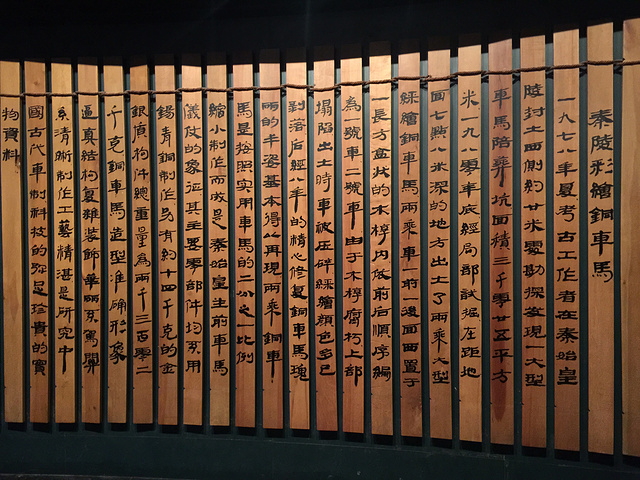 秦陵彩繪銅車馬
一九七八年夏考古工作者在秦始皇
陵封土西側約廿米處勘探發現一大型
車馬陪葬坑面積三千零廿五平方
米一九八零年底經局部試掘在距地
面七點八米深的地方出土了兩乘大型
綵繪銅車馬兩乘車一前一後面西置于
一長方盒狀的木槨内依前后順序編
為一號車二號車由于木槨腐朽上部
塌陷出土時車被压碎綵繪顔色多已
剥落后經八年的精心修复銅車馬瑰
丽的丰姿基本得以再現兩乘銅車
馬是按照实用車馬的二分之一比例
縮小制作而成是秦始皇生前車馬
儀仗的象征其主要零部件均系用
錫青銅制作另有約十四千克的金
銀质构件總重量為兩千三百零二
千克銅車馬造型准确形象
逼真結构复雜装飾華丽系駕關
系清晰制作工藝精湛是所究中
國古代車制科技的弥足珍貴的實
物資料